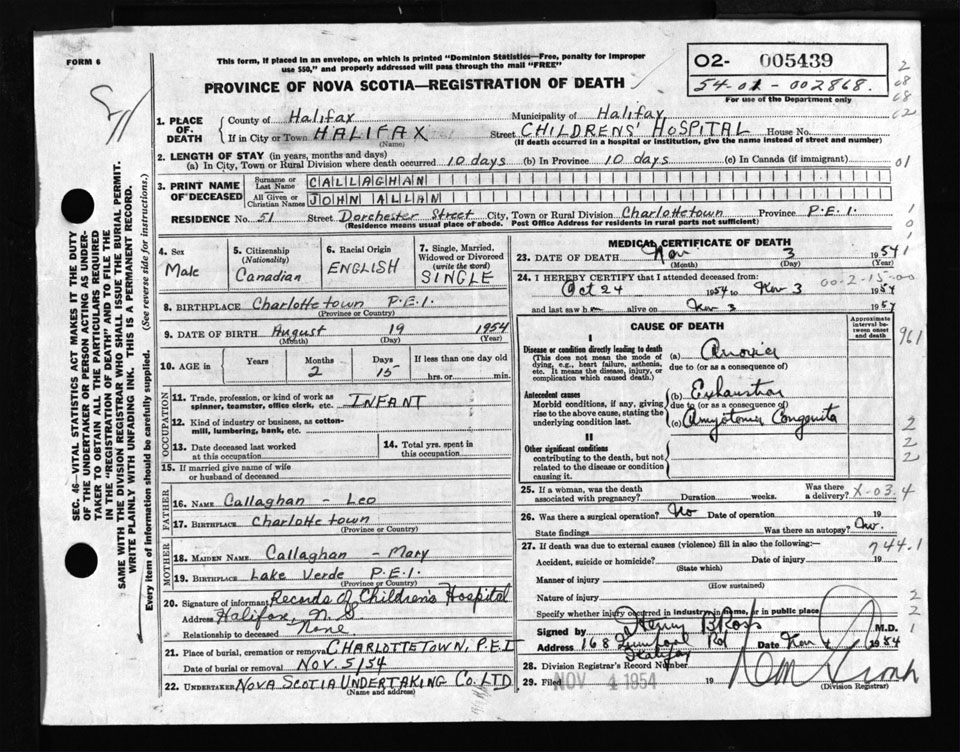 FORM 6
This form, if placed in an envelope, on which is printed "Dominion Statistics—Free, penalty for improper
use $50," and properly addressed will pass through the mail "FREE"
PROVINCE OF NOVA SCOTIA—REGISTRATION OF DEATH
02- 005439
54-01-002868.
For use of the Department only
2
08
68
02
1. PLACE OF DEATH County of Halifax Municipality of Halifax
If in City or Town HALIFAX (Name) Street CHILDRENS' HOSPITAL House No.
(If death occurred in a hospital or institution, give the name instead of street and number)
2. LENGTH OF STAY (in years, months and days)
(a) In City, Town or Rural Division where death occurred 10 days (b) In Province 10 days (c) In Canada (if immigrant) 01
3. PRINT NAME OF DECEASED Surname or Last Name CALLAGHAN
All Given or Christian Names JOHN ALLAN
RESIDENCE No. 51 Street Dorchester Street City, Town or Rural Division Charlottetown Province P.E.I.
(Residence means usual place of abode. Post Office Address for residents in rural parts not sufficient)
4. Sex Male
5. Citizenship (Nationality) Canadian
6. Racial Origin ENGLISH
7. Single, Married, Widowed or Divorced (write the word) SINGLE
8. BIRTHPLACE Charlottetown P.E.I.
(Province or Country)
9. DATE OF BIRTH August 19 1954
(Month) (Day) (Year)
10. AGE in Years Months 2 Days 15 If less than one day old hrs. or min.
OCCUPATION
11. Trade, profession, or kind of work as
spinner, teamster, office clerk, etc. INFANT
12. Kind of industry or business, as cotton-
mill, lumbering, bank, etc.
13. Date deceased last worked
at this occupation
14. Total yrs. spent in
this occupation
15. If married give name of wife
or husband of deceased
FATHER
16. NAME Callaghan - Leo
17. BIRTHPLACE Charlottetown
(Province or Country)
MOTHER
18. MAIDEN NAME Callaghan - Mary
19. BIRTHPLACE Lake Verde P.E.I.
(Province or Country)
20. Signature of informant Records of Children's Hospital
Address Halifax, N.S.
Relationship to deceased None
21. Place of burial, cremation or removal CHARLOTTETOWN, P.E.I
Date of burial or removal NOV. 5/54
22. UNDERTAKER NOVA SCOTIA UNDERTAKING CO. LTD
(Name and address)
MEDICAL CERTIFICATE OF DEATH
23. DATE OF DEATH Nov 3 1954
(Month) (Day) (Year)
24. I HEREBY CERTIFY that I attended deceased from: 00-2-15-00
Oct 24 1954 to Nov 3 1954
and last saw h m alive on Nov 3 1954
CAUSE OF DEATH
Approximate interval between onset and death
961
I
Disease or condition directly leading to death (a) Anoxia
(This does not mean the mode of
dying, e.g., heart failure, asthenia,
etc. It means the disease, injury, or
complication which caused death.)
due to (or as a consequence of)
Antecedent causes (b) Exhaustion
Morbid conditions, if any, giving
rise to the above cause, stating the
underlying condition last.
due to (or as a consequence of)
(c) Amyotonia Congenita
II
Other significant conditions
contributing to the death, but not
related to the disease or condition
causing it.
2
2
2
25. If a woman, was the death
associated with pregnancy? Duration weeks. Was there a delivery? X-03.4
26. Was there a surgical operation? No Date of operation 19
State findings Was there an autopsy? No.
27. If death was due to external causes (violence) fill in also the following:— 744.1
Accident, suicide or homicide? Date of injury 19
(State which)
Manner of injury
(How sustained)
Nature of injury 2
Specify whether injury occurred in industry, in home, or in public place 2
Signed by Henry B Ross M.D. 1
Address 168 Rd Date Nov 4 1954
Halifax
28. Division Registrar's Record Number
29. Filed NOV 4 1954 19
(Division Registrar)
SEC. 46—VITAL STATISTICS ACT MAKES IT THE DUTY
OF THE UNDERTAKER OR PERSON ACTING AS UNDER-
TAKER TO OBTAIN ALL THE PARTICULARS REQUIRED
IN THE "REGISTRATION OF DEATH" AND TO FILE THE
SAME WITH THE DIVISION REGISTRAR WHO SHALL ISSUE THE BURIAL PERMIT.
WRITE PLAINLY WITH UNFADING INK. THIS IS A PERMANENT RECORD.
Every item of information should be carefully supplied. (See reverse side for instructions.)